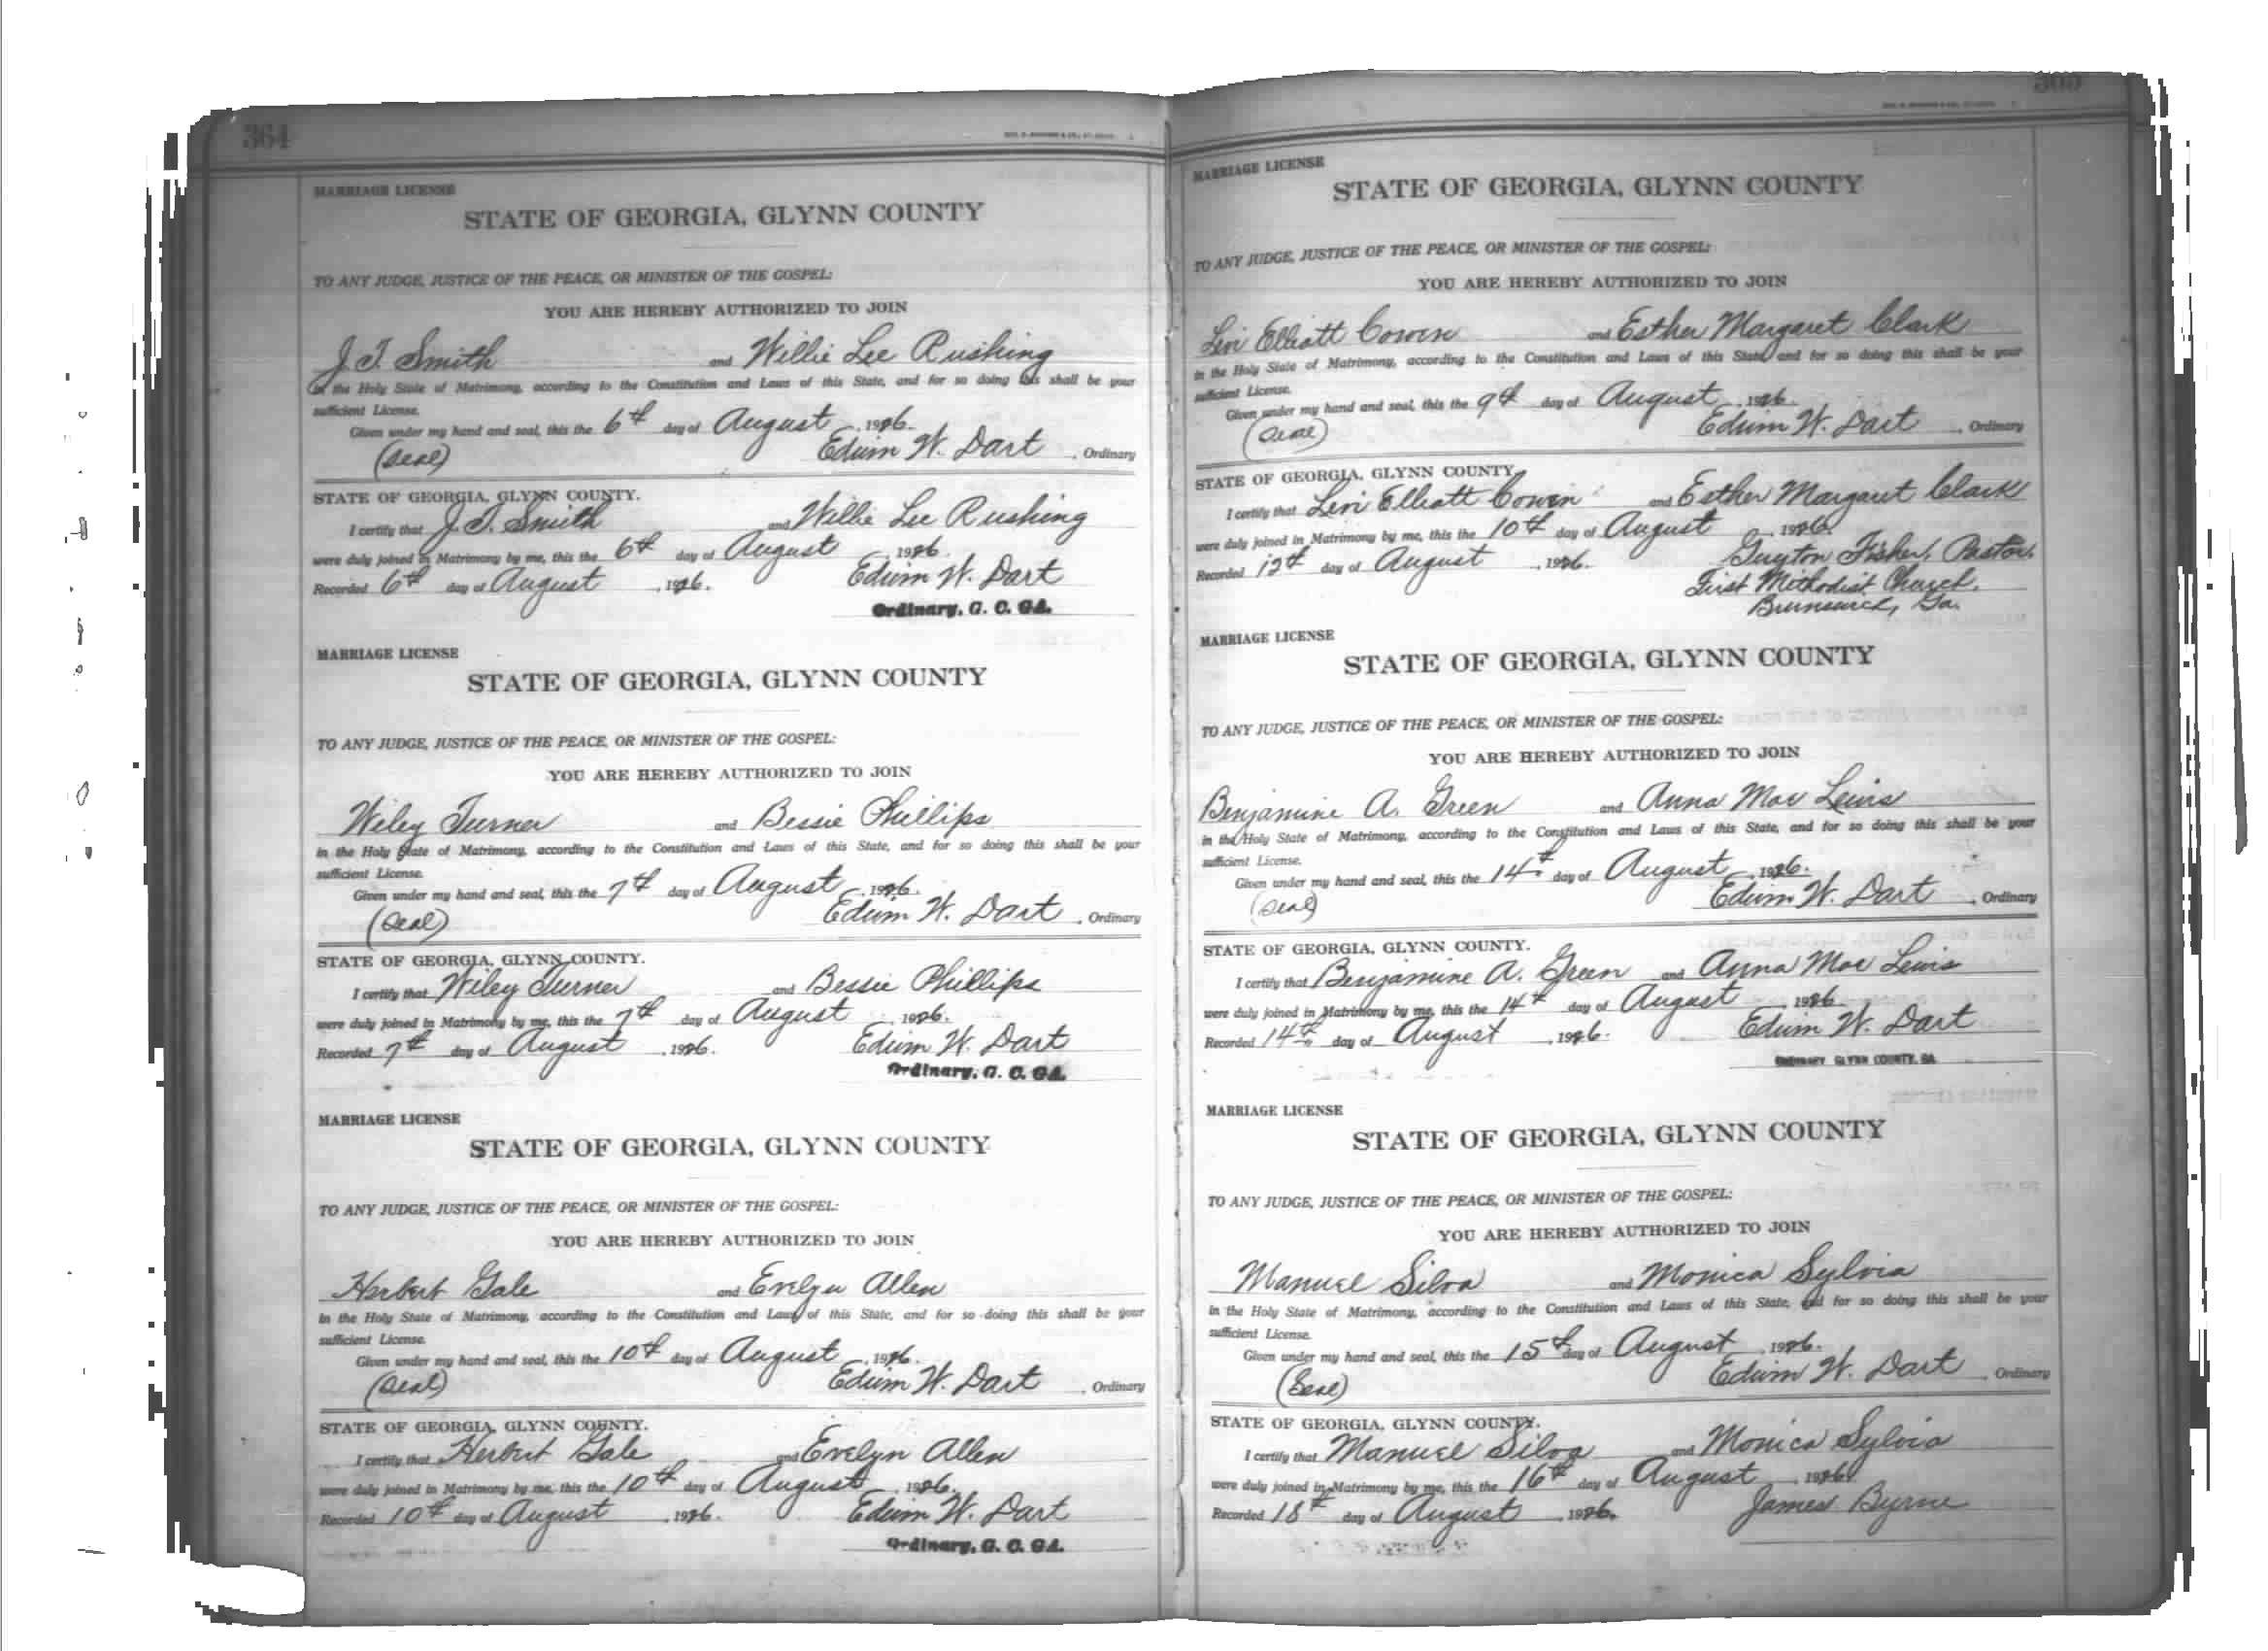 364
MARRIAGE LICENSE
STATE OF GEORGIA, GLYNN COUNTY
TO ANY JUDGE, JUSTICE OF THE PEACE, OR MINISTER OF THE GOSPEL:
YOU ARE HEREBY AUTHORIZED TO JOIN
J. T. Smith and Willie Lee Rushing
in the Holy State of Matrimony, according to the Constitution and Laws of this State, and for so doing this shall be your
sufficient License.
Given under my hand and seal, this the 6th day of August, 1926.
(Seal) Edwin W. Dart, Ordinary
STATE OF GEORGIA, GLYNN COUNTY.
I certify that J. T. Smith and Willie Lee Rushing
were duly joined in Matrimony by me, this the 6th day of August, 1926.
Recorded 6th day of August, 1926. Edwin W. Dart
Ordinary, G. C. GA.
MARRIAGE LICENSE
STATE OF GEORGIA, GLYNN COUNTY
TO ANY JUDGE, JUSTICE OF THE PEACE, OR MINISTER OF THE GOSPEL:
YOU ARE HEREBY AUTHORIZED TO JOIN
Wiley Turner and Bessie Phillips
in the Holy State of Matrimony, according to the Constitution and Laws of this State, and for so doing this shall be your
sufficient License.
Given under my hand and seal, this the 7th day of August, 1926.
(Seal) Edwin W. Dart, Ordinary
STATE OF GEORGIA, GLYNN COUNTY.
I certify that Wiley Turner and Bessie Phillips
were duly joined in Matrimony by me, this the 7th day of August, 1926.
Recorded 7th day of August, 1926. Edwin W. Dart
Ordinary, G. C. GA.
MARRIAGE LICENSE
STATE OF GEORGIA, GLYNN COUNTY
TO ANY JUDGE, JUSTICE OF THE PEACE, OR MINISTER OF THE GOSPEL:
YOU ARE HEREBY AUTHORIZED TO JOIN
Herbert Gale and Evelyn Allen
in the Holy State of Matrimony, according to the Constitution and Laws of this State, and for so doing this shall be your
sufficient License.
Given under my hand and seal, this the 10th day of August, 1926.
(Seal) Edwin W. Dart, Ordinary
STATE OF GEORGIA, GLYNN COUNTY.
I certify that Herbert Gale and Evelyn Allen
were duly joined in Matrimony by me, this the 10th day of August, 1926.
Recorded 10th day of August, 1926. Edwin W. Dart
Ordinary, G. C. GA.
MARRIAGE LICENSE
STATE OF GEORGIA, GLYNN COUNTY
TO ANY JUDGE, JUSTICE OF THE PEACE, OR MINISTER OF THE GOSPEL:
YOU ARE HEREBY AUTHORIZED TO JOIN
Levi Elliott Cowen and Esther Margaret Clark
in the Holy State of Matrimony, according to the Constitution and Laws of this State, and for so doing this shall be your
sufficient License.
Given under my hand and seal, this the 9th day of August, 1926.
(Seal) Edwin W. Dart, Ordinary
STATE OF GEORGIA, GLYNN COUNTY.
I certify that Levi Elliott Cowen and Esther Margaret Clark
were duly joined in Matrimony by me, this the 10th day of August, 1926.
Recorded 12th day of August, 1926. Guyton Fisher, Pastor.
First Methodist Church.
Brunswick, Ga.
MARRIAGE LICENSE
STATE OF GEORGIA, GLYNN COUNTY
TO ANY JUDGE, JUSTICE OF THE PEACE, OR MINISTER OF THE GOSPEL:
YOU ARE HEREBY AUTHORIZED TO JOIN
Benjamine A. Green and Anna Mae Lewis
in the Holy State of Matrimony, according to the Constitution and Laws of this State, and for so doing this shall be your
sufficient License.
Given under my hand and seal, this the 14th day of August, 1926.
(Seal) Edwin W. Dart, Ordinary
STATE OF GEORGIA, GLYNN COUNTY.
I certify that Benjamine A. Green and Anna Mae Lewis
were duly joined in Matrimony by me, this the 14th day of August, 1926
Recorded 14th day of August, 1926. Edwin W. Dart
ORDINARY GLYNN COUNTY, GA
MARRIAGE LICENSE
STATE OF GEORGIA, GLYNN COUNTY
TO ANY JUDGE, JUSTICE OF THE PEACE, OR MINISTER OF THE GOSPEL:
YOU ARE HEREBY AUTHORIZED TO JOIN
Manuel Silva and Monica Sylvia
in the Holy State of Matrimony, according to the Constitution and Laws of this State, and for so doing this shall be your
sufficient License.
Given under my hand and seal, this the 15th day of August, 1926.
(Seal) Edwin W. Dart, Ordinary
STATE OF GEORGIA, GLYNN COUNTY.
I certify that Manuel Silva and Monica Sylvia
were duly joined in Matrimony by me, this the 16th day of August, 1926
Recorded 18th day of August, 1926. James Byrne